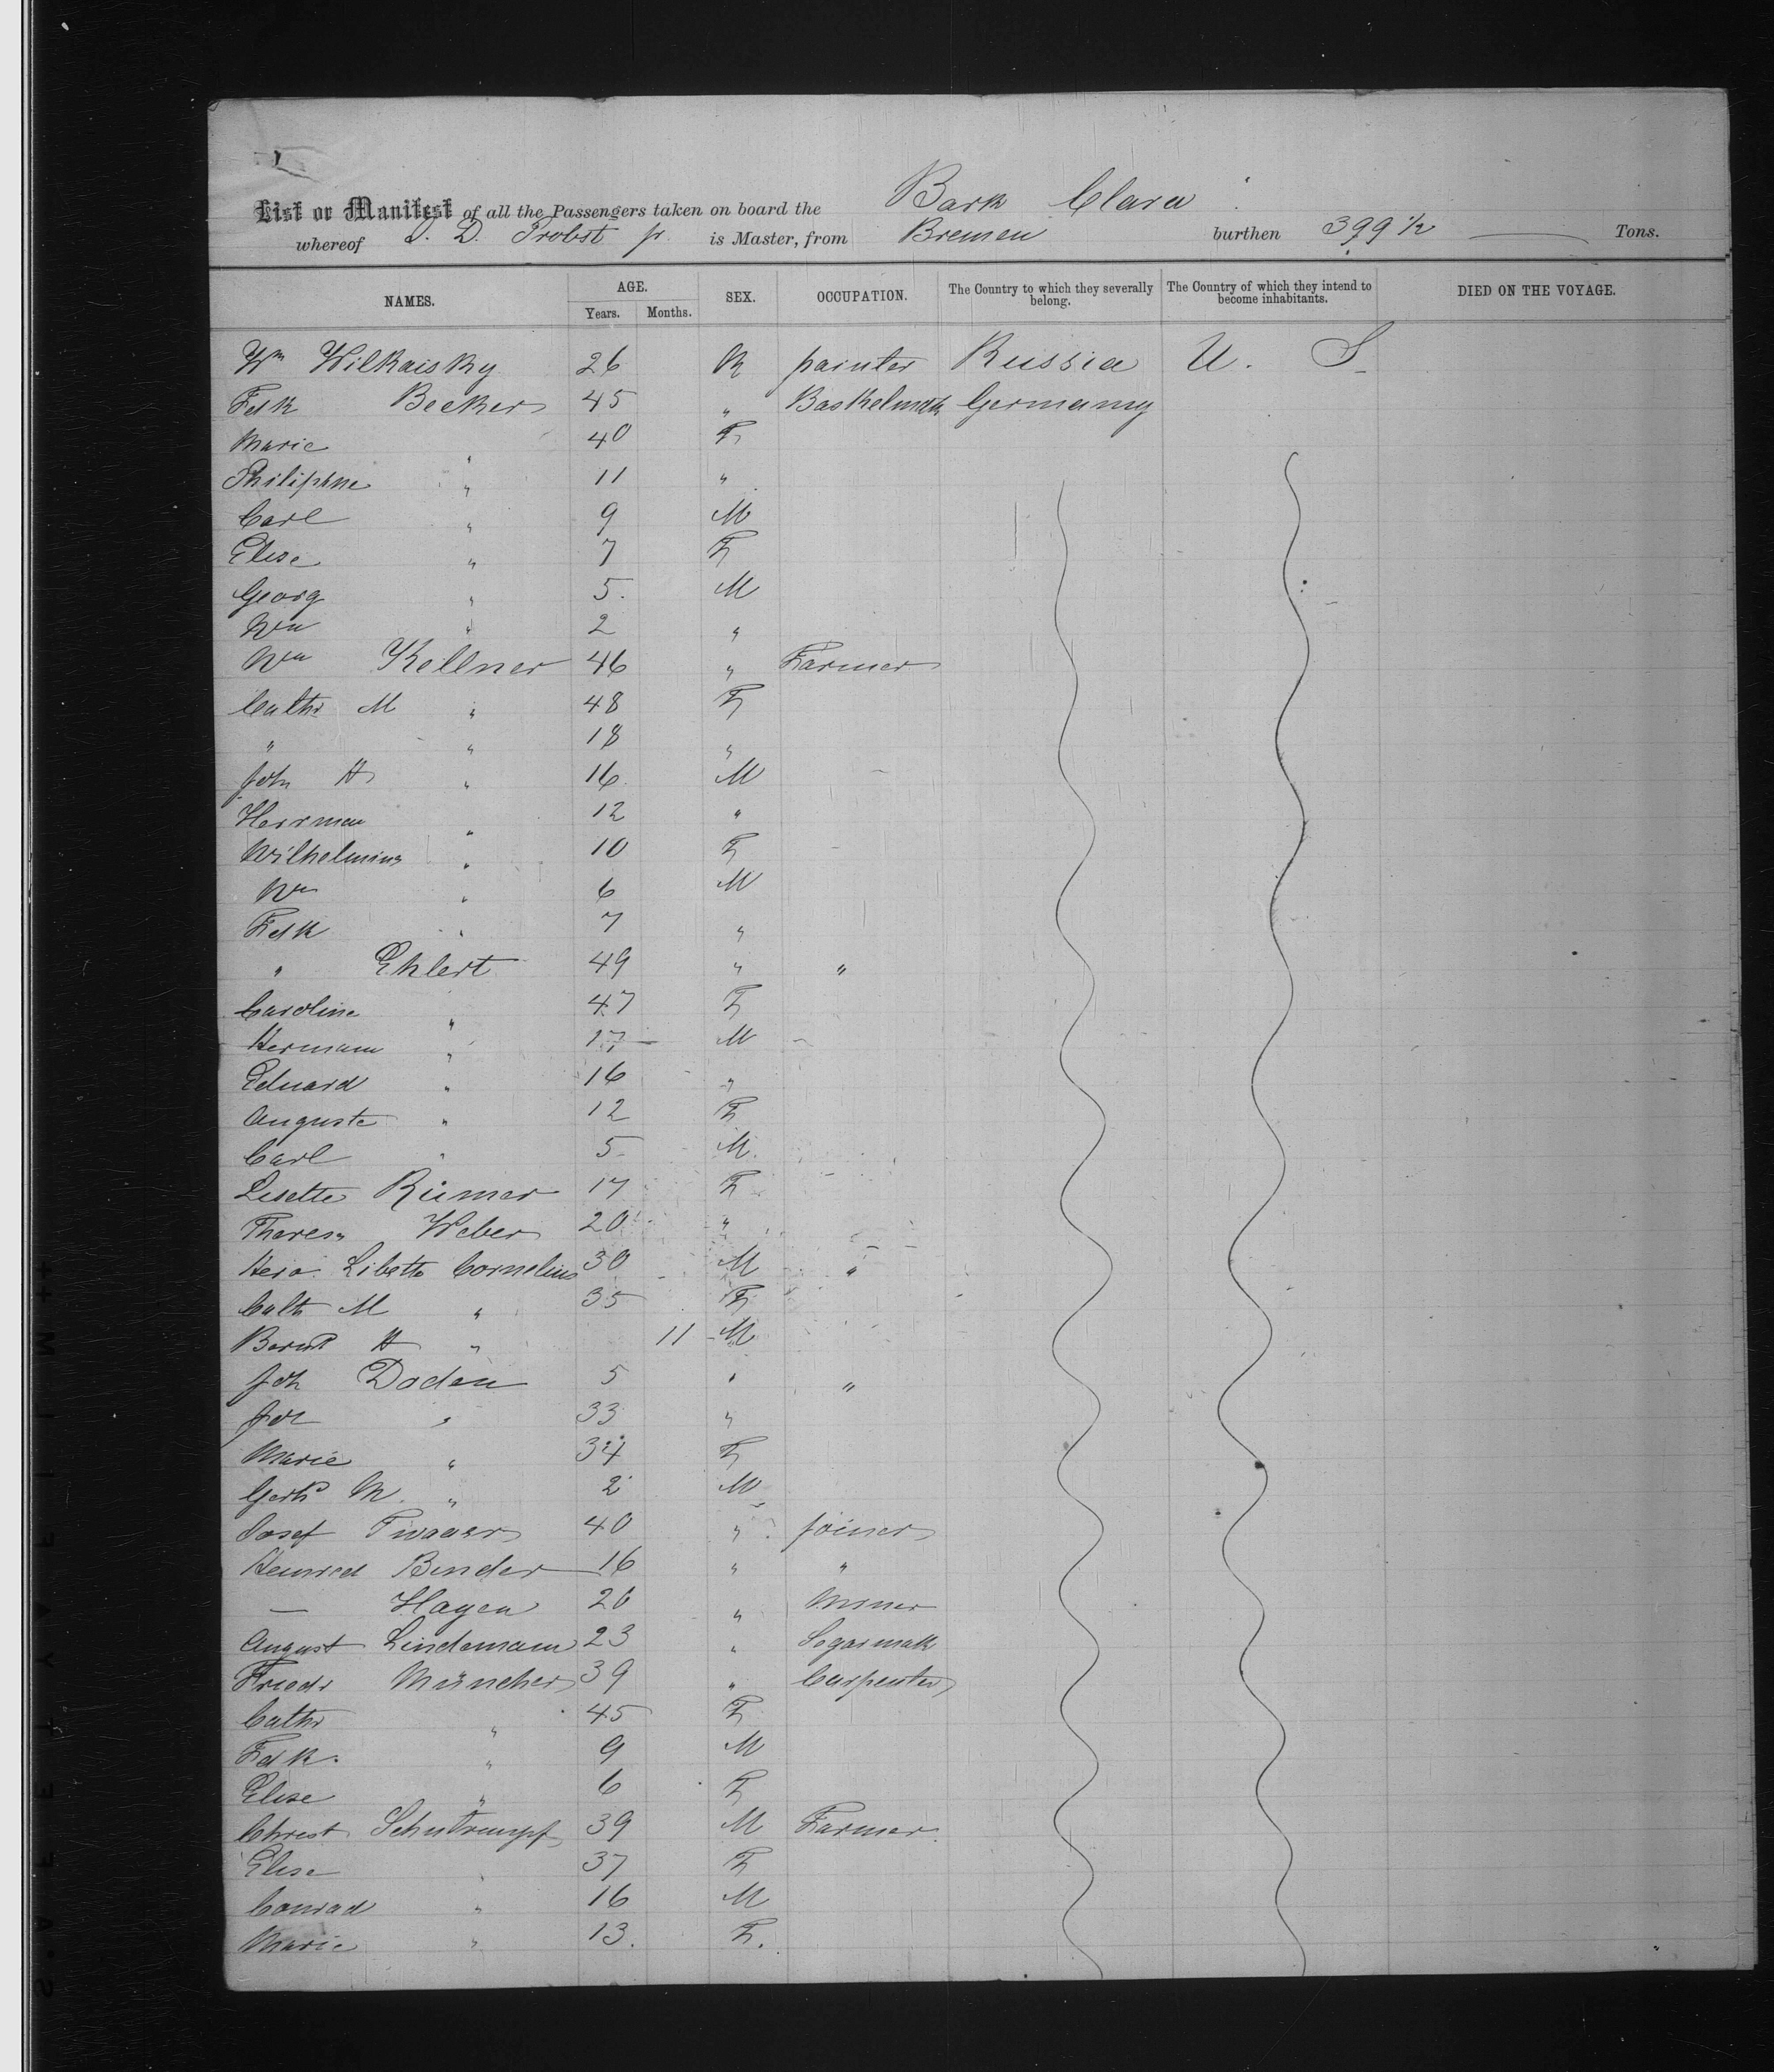 List or Manifest of all the Passengers taken on board the Bark Clara
whereof D. Probst jr is Master, from Bremen burthen 399 1/2 Tons.
NAMES. AGE. SEX. OCCUPATION. The Country to which they severally belong. The Country of which they intend to become inhabitants. DIED ON THE VOYAGE.
Years. Months.
Wm Wilkaisky 26 M painter Russia U. S.
Fdk Becker 45 " Germany
Marie " 40 F
" 11 "
Carl " 9 M
Elise " 7 F
Georg " 5. M
Wm " 2 "
Wm Kellner 46 " Farmer
Cathr M " 48 F
" " 18 "
Joh H " 16 M
Herrman " 12 "
Wilhelmina " 10 F
Wm " 6 M
Fdk " 7 "
" Ehlert 49 " "
Caroline " 47 F
Hermann " 17 M
Eduard " 16 "
Auguste " 12 F
Carl " 5 M
Lisette Riemer 17 F
Theresa Weber 20 "
Libetto Cornelius 30 M "
Cath M " 35 F
Bernd H " 11 M
Joh Doden 5 " "
Joh " 33 "
Marie " 34 F
Gerhd M. " 2 M
Josef 40 " joiner
Binder 16 " "
— Hagen 20 " Miner
August Lindemann 23 " Segarmak
Friedr Müncher 39 " Carpenter
Cathr " 45 F
Fdk. " 9 M
Elise " 6 F
Christ Schutrumpf 39 M Farmer
Elise " 37 F
Conrad " 16 M
Marie " 13. F.